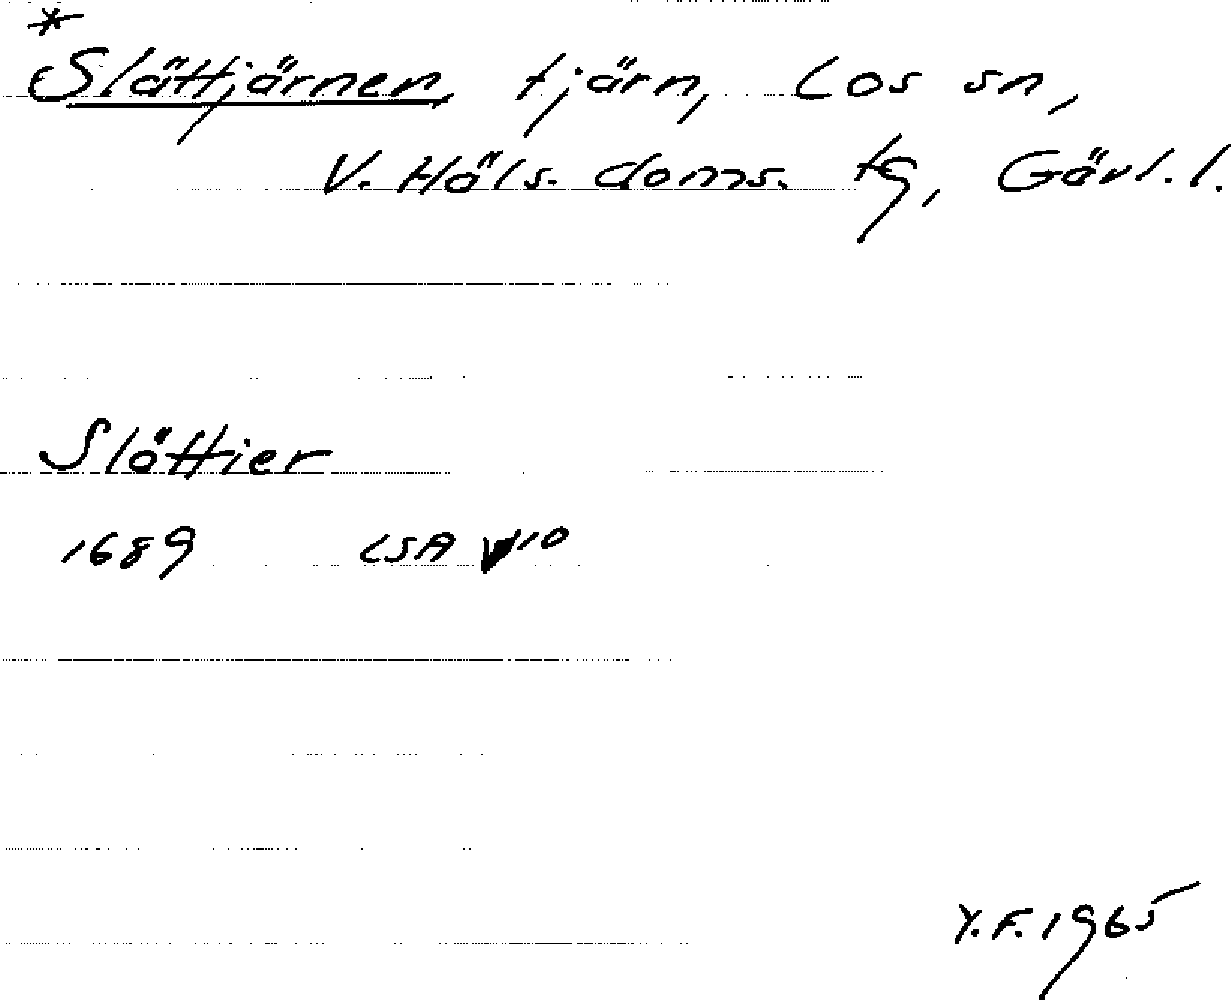 *
Slättjärnen, tjärn, Los sn,
V. Häls. doms. tg, Gävl. l.
Slättier
1689 LSA V 10
Y.F. 1965